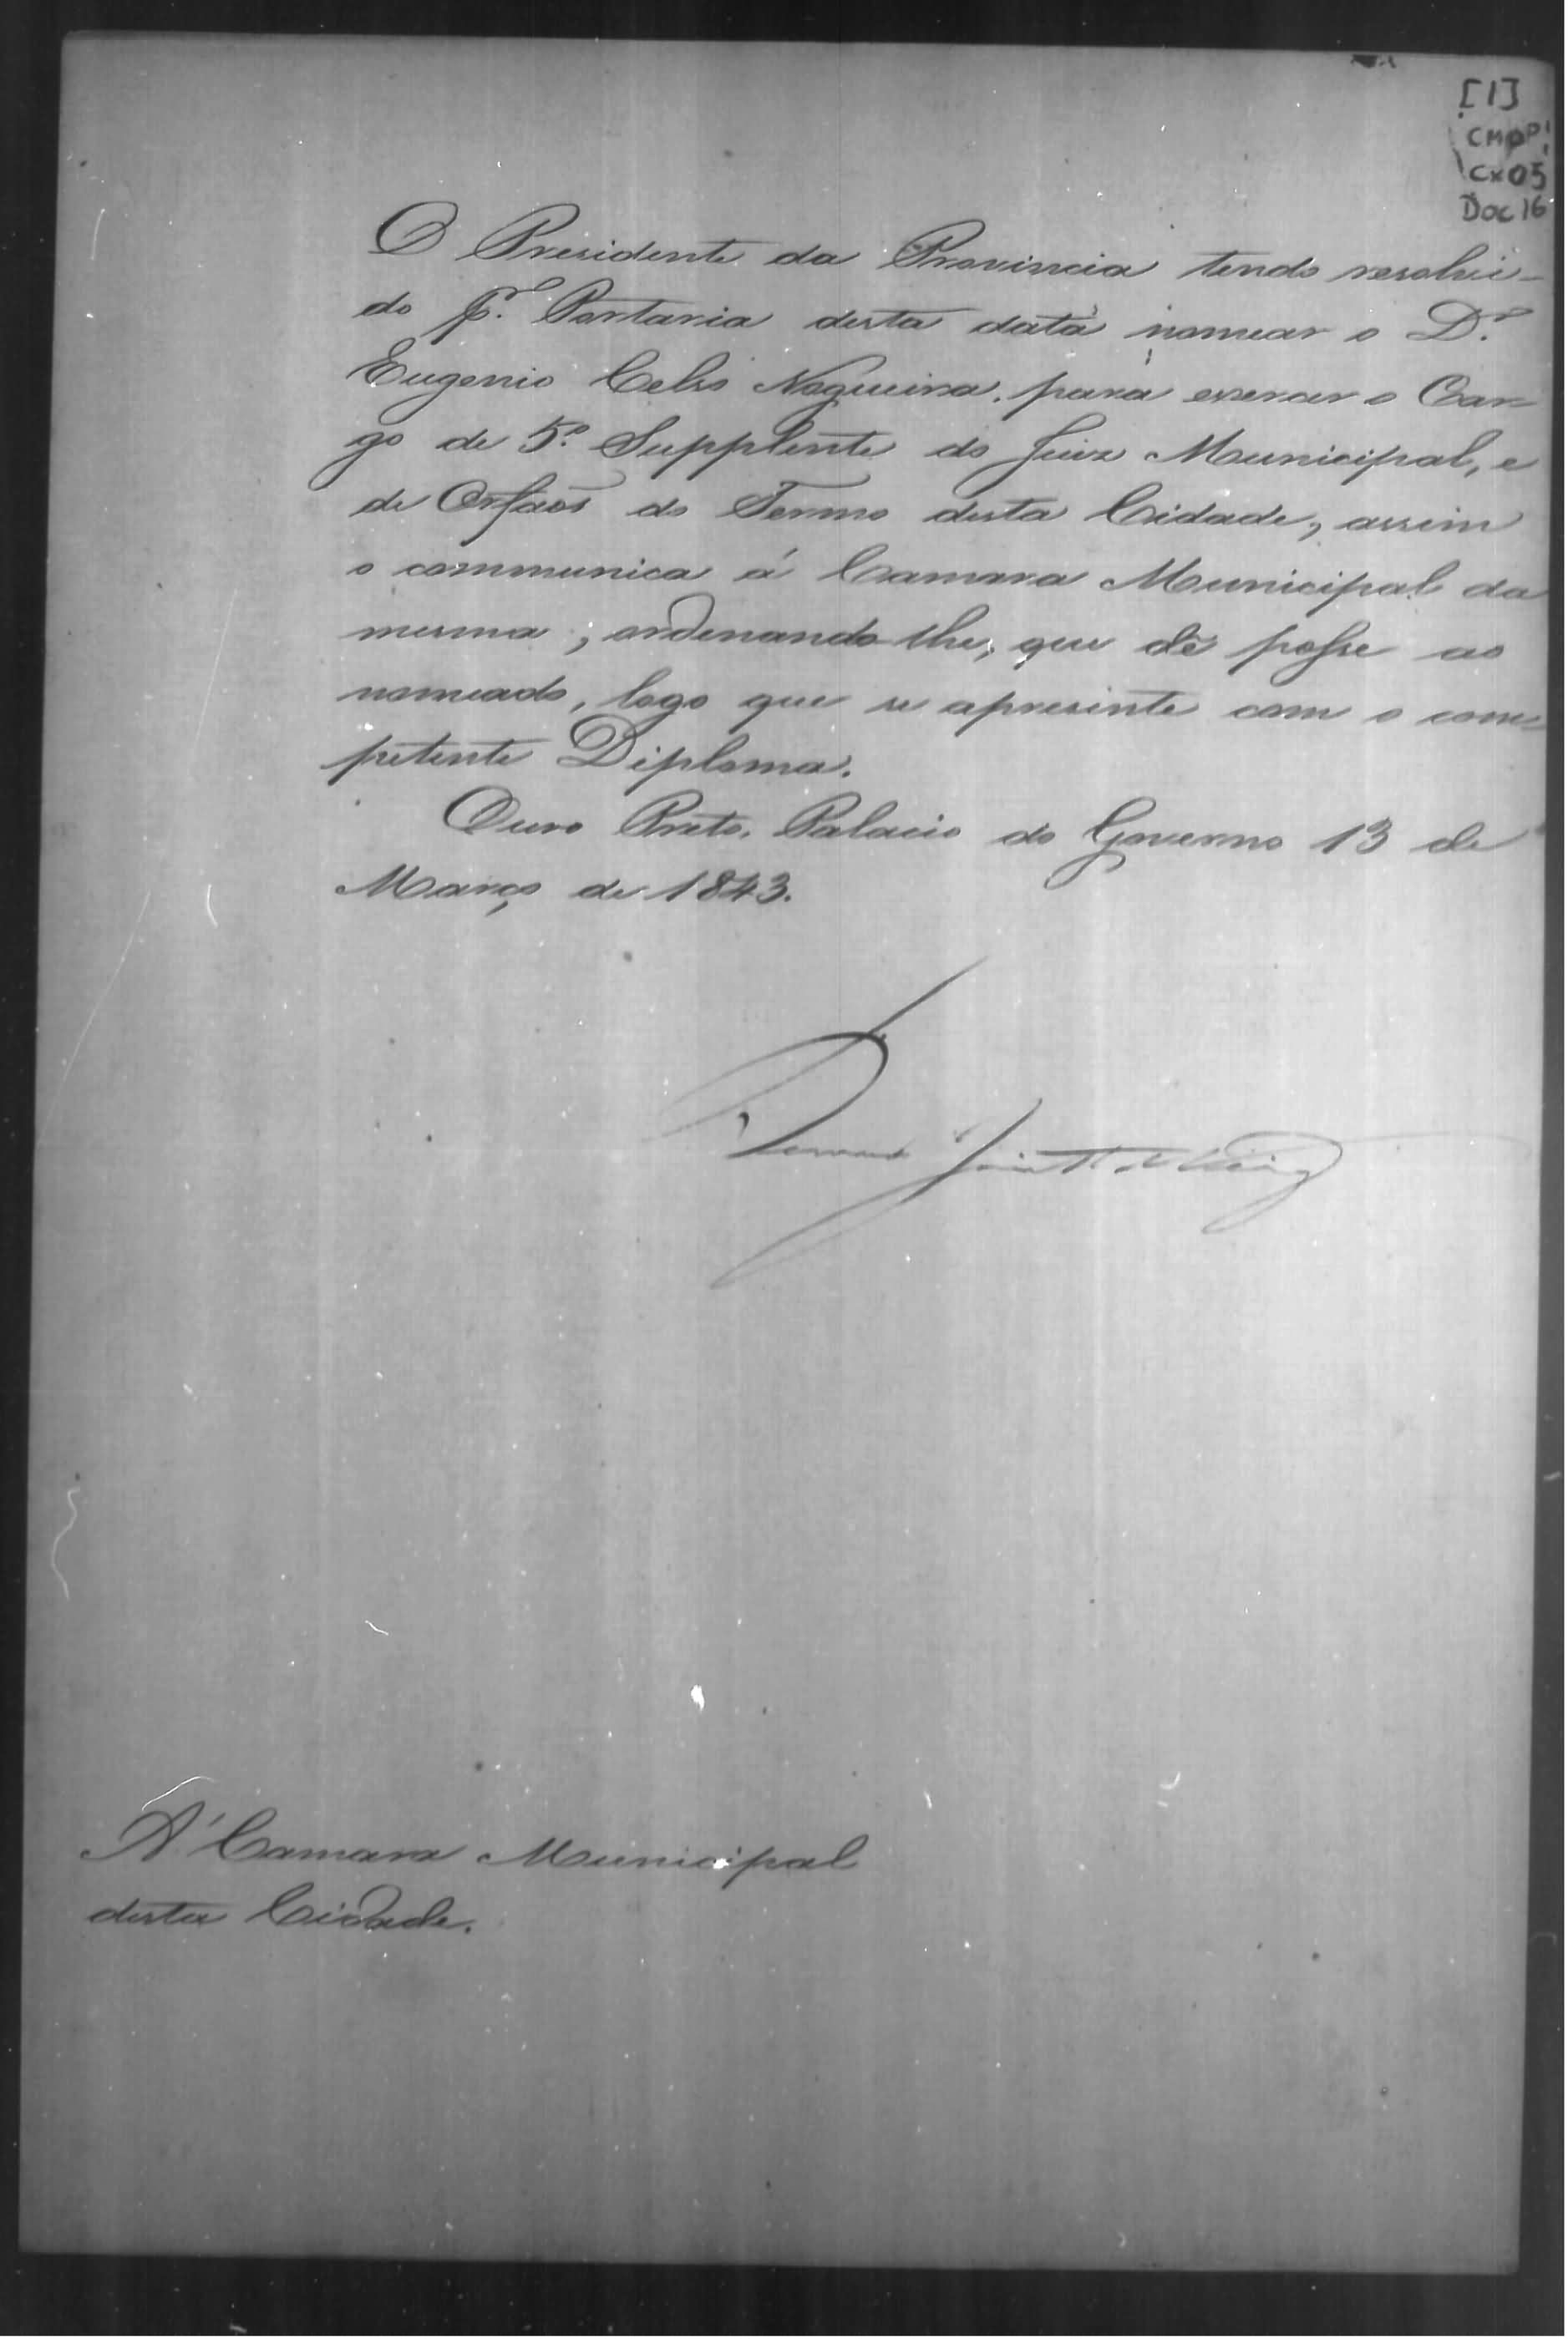 [1]
CMOP
Cx05
Doc 16
O Presidente da Provincia tendo resolvi-
do pr. Portaria desta data nomear o Dr.
Eugenio Celso Nogueira, para exercer o Car-
go de 5º Supplente do Juiz Municipal, e
de Orfãos do Termo desta Cidade, assim
o communica á Camara Municipal da
mesma, ordenando-lhe, que dê posse ao
nomeado, logo que se apresente com o com-
petente Diploma.
Ouro Preto, Palacio do Governo 13 de
Março de 1843.
A' Camara Municipal
desta Cidade.